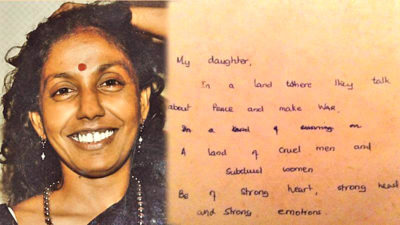 My daughter,
In a land where they talk
about PEACE and make WAR.
In a land of
A land of cruel men and
subdued women
Be of strong heart, strong head
and strong emotions.